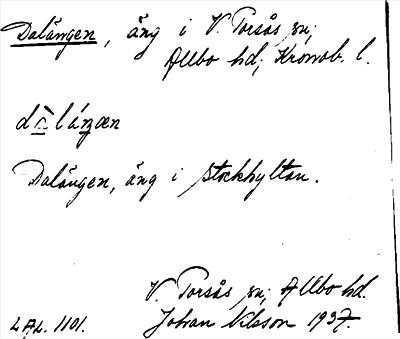 Dalängen, äng i V. Torsås sn;
Allbo hd; Kronob. l.
Dalängen, äng i Stockhyltan.
V. Torsås sn; Allbo hd.
LAL. 1101. Johan Nilsson 1937.